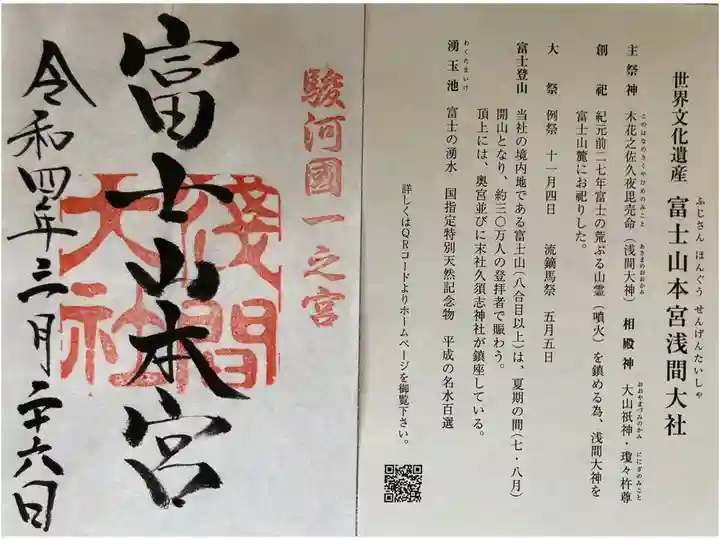 駿河國一之宮
富士山本宮
淺間大社
令和四年三月二十六日
世界文化遺産 富士山本宮浅間大社
ふじさん ほんぐう せんげんたいしゃ
主祭神 木花之佐久夜毘売命（浅間大神） 相殿神 大山祇神・瓊々杵尊
このはなのさくやひめのみこと あさまのおおかみ おおやまづみのかみ ににぎのみこと
創祀 紀元前二七年富士の荒ぶる山霊（噴火）を鎮める為、浅間大神を
富士山麓にお祀りした。
大祭 例祭 十一月四日 流鏑馬祭 五月五日
富士登山 当社の境内地である富士山（八合目以上）は、夏期の間（七・八月）
開山となり、約三〇万人の登拝者で賑わう。
頂上には、奥宮並びに末社久須志神社が鎮座している。
わくたまいけ
湧玉池 富士の湧水 国指定特別天然記念物 平成の名水百選
詳しくはQRコードよりホームページを御覧下さい。